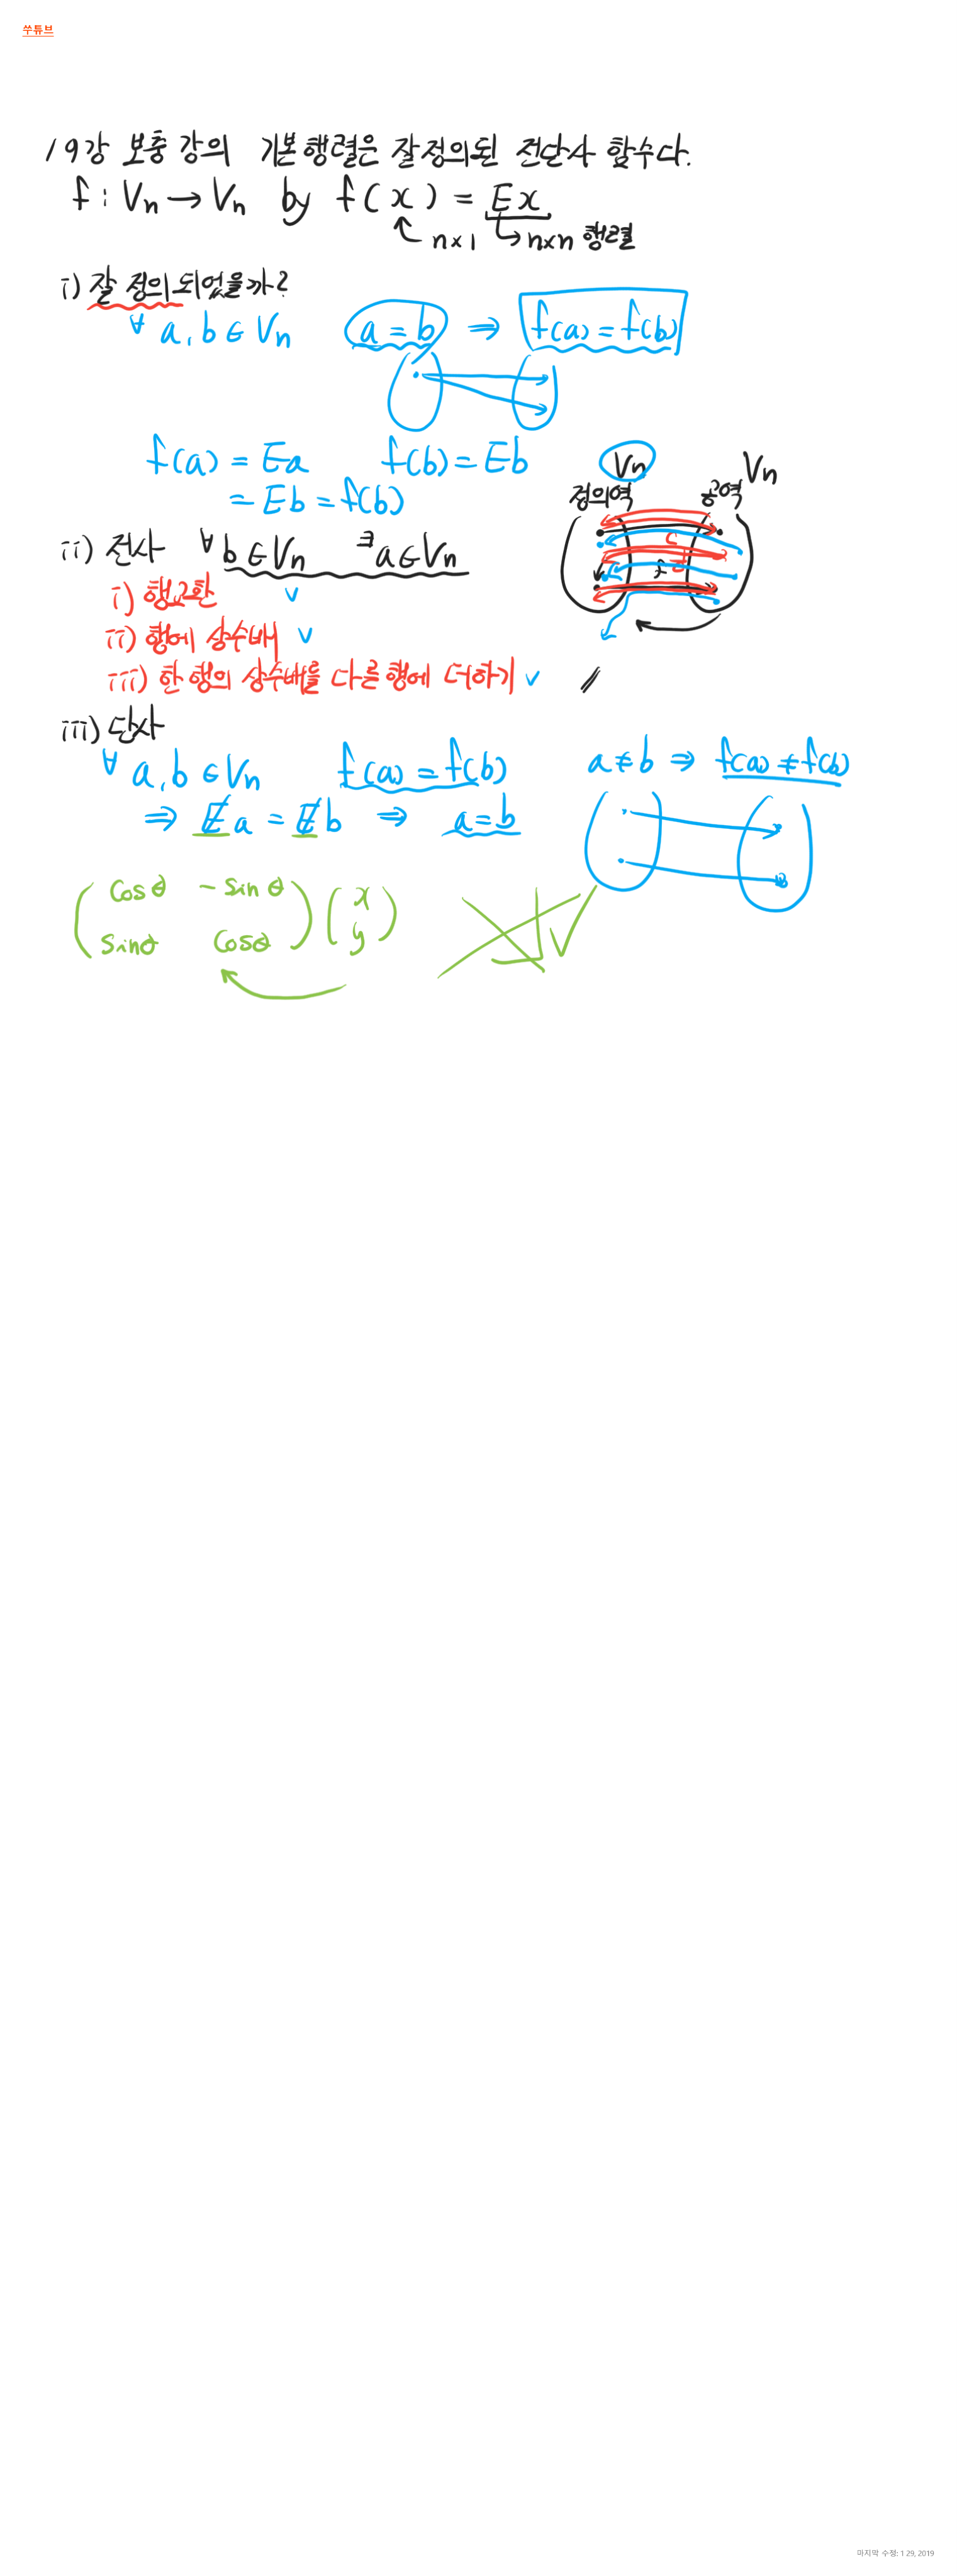 쑤튜브
19강 보충 강의 기본행렬은 잘정의된 전단사 함수다.
f : Vn → Vn by f(x) = Ex
n×1 n×n 행렬
i) 잘 정의되었을까?
∀ a, b ∈ Vn a = b ⇒ f(a) = f(b)
f(a) = Ea f(b) = Eb
= Eb = f(b)
Vn Vn
정의역 공역
ii) 전사 ∀b ∈ Vn ∃a ∈ Vn
i) 행교환 ∨
ii) 행에 상수배 ∨
iii) 한 행의 상수배를 다른 행에 더하기 ∨
f
iii) 단사
∀ a, b ∈ Vn f(a) = f(b) a ≠ b ⇒ f(a) ≠ f(b)
⇒ Ea = Eb ⇒ a = b
cosθ -sinθ x
sinθ cosθ y
마지막 수정: 1 29, 2019